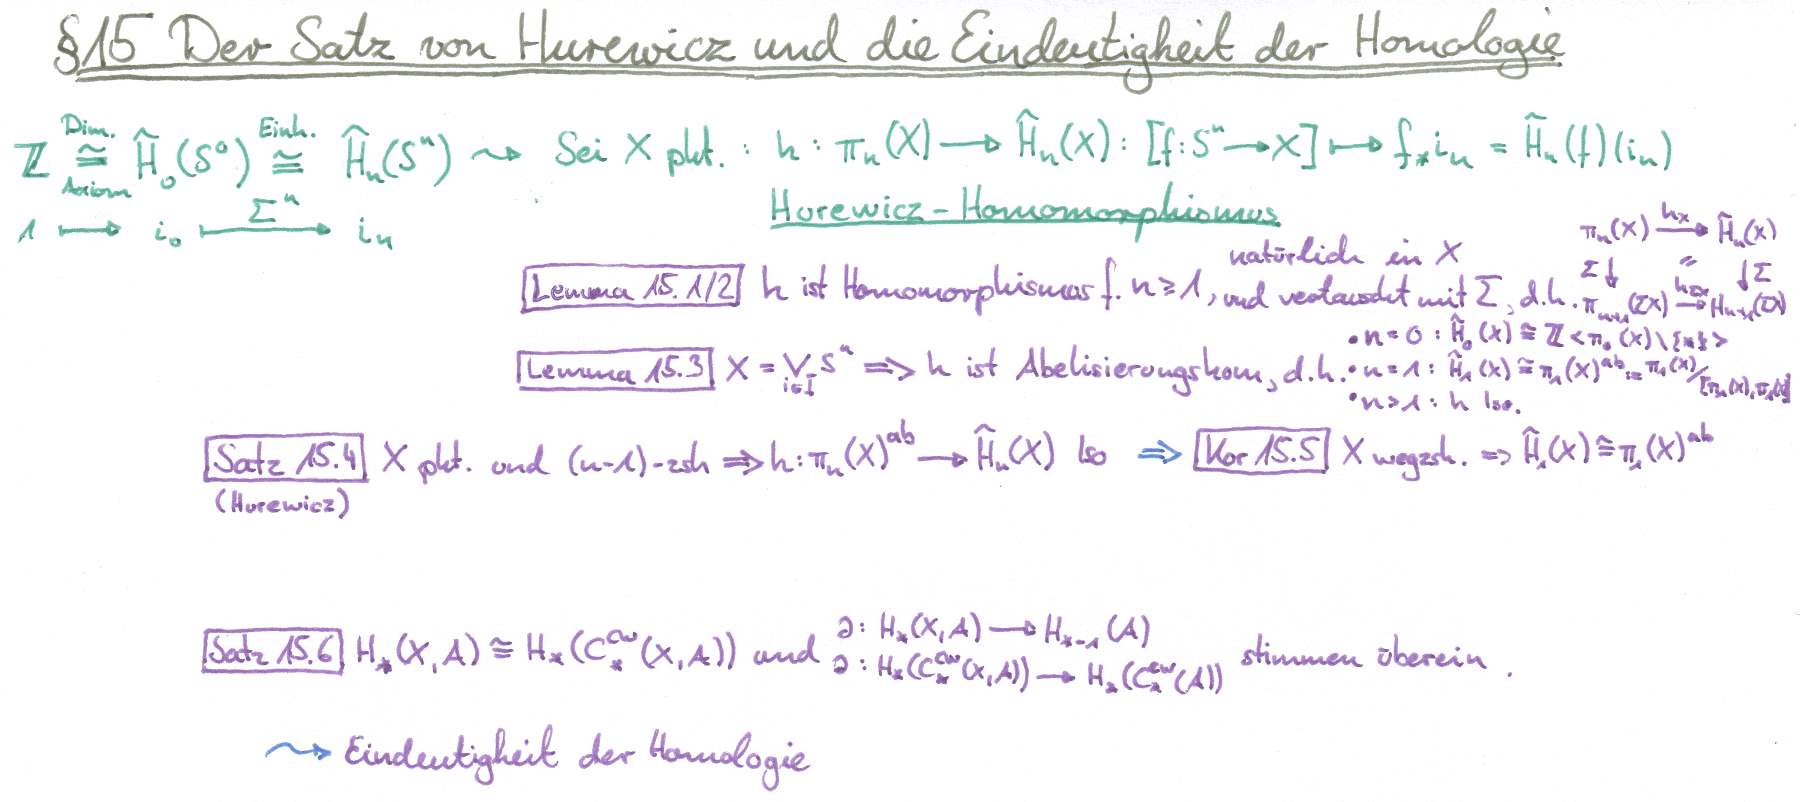 §15 Der Satz von Hurewicz und die Eindeutigkeit der Homologie
ℤ ≅ (Dim. Axiom) H̃₀(S⁰) ≅ (Einh.) H̃ₙ(Sⁿ) ⇝ Sei X pkt. : h : πₙ(X) ⟶ H̃ₙ(X) : [f: Sⁿ → X] ⟼ f_* iₙ = H̃ₙ(f)(iₙ)
1 ⟼ i₀ ⟼ (Σⁿ) iₙ
Hurewicz-Homomorphismus
Lemma 15.1/2 h ist Homomorphismus f. n ≥ 1, natürlich in X und vertauscht mit Σ, d.h.
πₙ(X) ⟶ (h_X) H̃ₙ(X)
Σ↓ = ↓Σ
πₙ₊₁(ΣX) ⟶ (h_ΣX) Hₙ₊₁(ΣX)
Lemma 15.3 X = ⋁_{i∈I} Sⁿ ⟹ h ist Abelisierungshom, d.h.
• n = 0 : H̃₀(X) ≅ ℤ<π₀(X)\{*}>
• n = 1 : H̃₁(X) ≅ π₁(X)^ab := π₁(X)/[π₁(X), π₁(X)]
• n > 1 : h Iso.
Satz 15.4 X pkt. und (n-1)-zsh ⟹ h : πₙ(X)^ab ⟶ H̃ₙ(X) Iso ⟹ Kor 15.5 X wegzsh. ⟹ H̃₁(X) ≅ π₁(X)^ab
(Hurewicz)
Satz 15.6 H_*(X,A) ≅ H_*(C_*^cw(X,A)) und ∂ : H_*(X,A) ⟶ H_{*-1}(A)
∂ : H_*(C_*^cw(X,A)) ⟶ H_*(C_*^cw(A)) stimmen überein.
⇝ Eindeutigkeit der Homologie